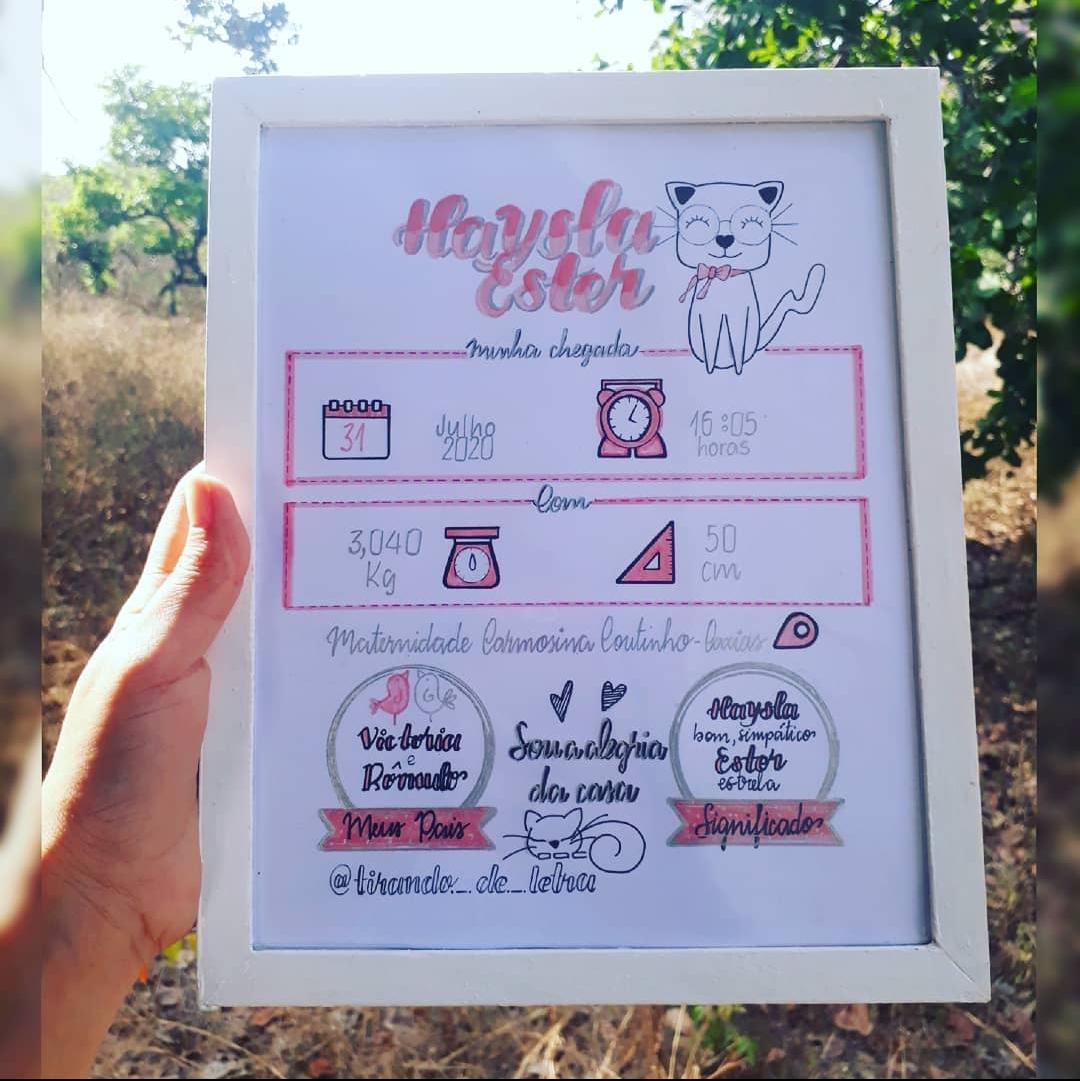 Haysla
Ester
minha chegada
31
Julho
2020
16:05
horas
Com
3,040
Kg
0
50
cm
Maternidade Carmosina Coutinho-Caxias
Victoria
e
Rômulo
Meus Pais
Sou a alegria
da casa
Haysla
bom, simpático
Ester
estrela
Significado
@tirando._de_letra